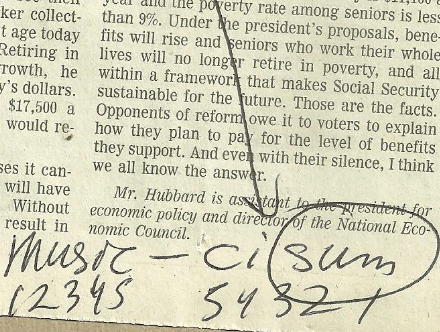 year and the poverty rate among seniors is less
ker collect-
than 9%. Under the president's proposals, bene-
t age today
fits will rise and seniors who work their whole
Retiring in
lives will no longer retire in poverty, and all
rowth, he
within a framework that makes Social Security
y's dollars.
sustainable for the future. Those are the facts.
$17,500 a
Opponents of reform owe it to voters to explain
would re-
how they plan to pay for the level of benefits
they support. And even with their silence, I think
we all know the answer.
ses it can-
will have
Without
result in
Mr. Hubbard is assistant to the president for
economic policy and director of the National Eco-
nomic Council.
music - cisum
12345 54321